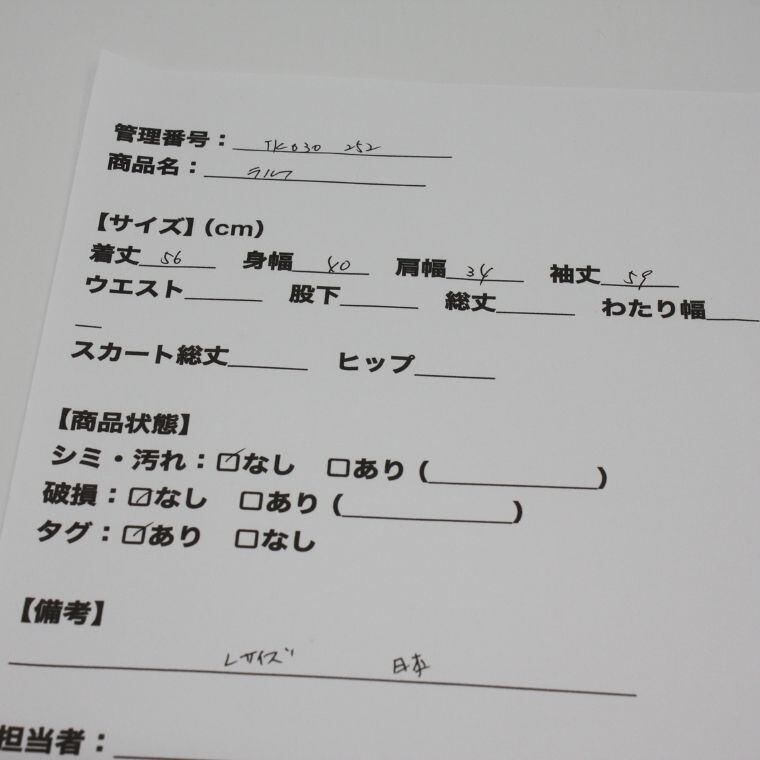 管理番号：TK030 252
商品名：ラルフ
【サイズ】(cm)
着丈 56 身幅 40 肩幅 34 袖丈 59
ウエスト 股下 総丈 わたり幅
スカート総丈 ヒップ
【商品状態】
シミ・汚れ：☑なし □あり (          )
破損：☑なし □あり (          )
タグ：☑あり □なし
【備考】
Lサイズ 日本
担当者：